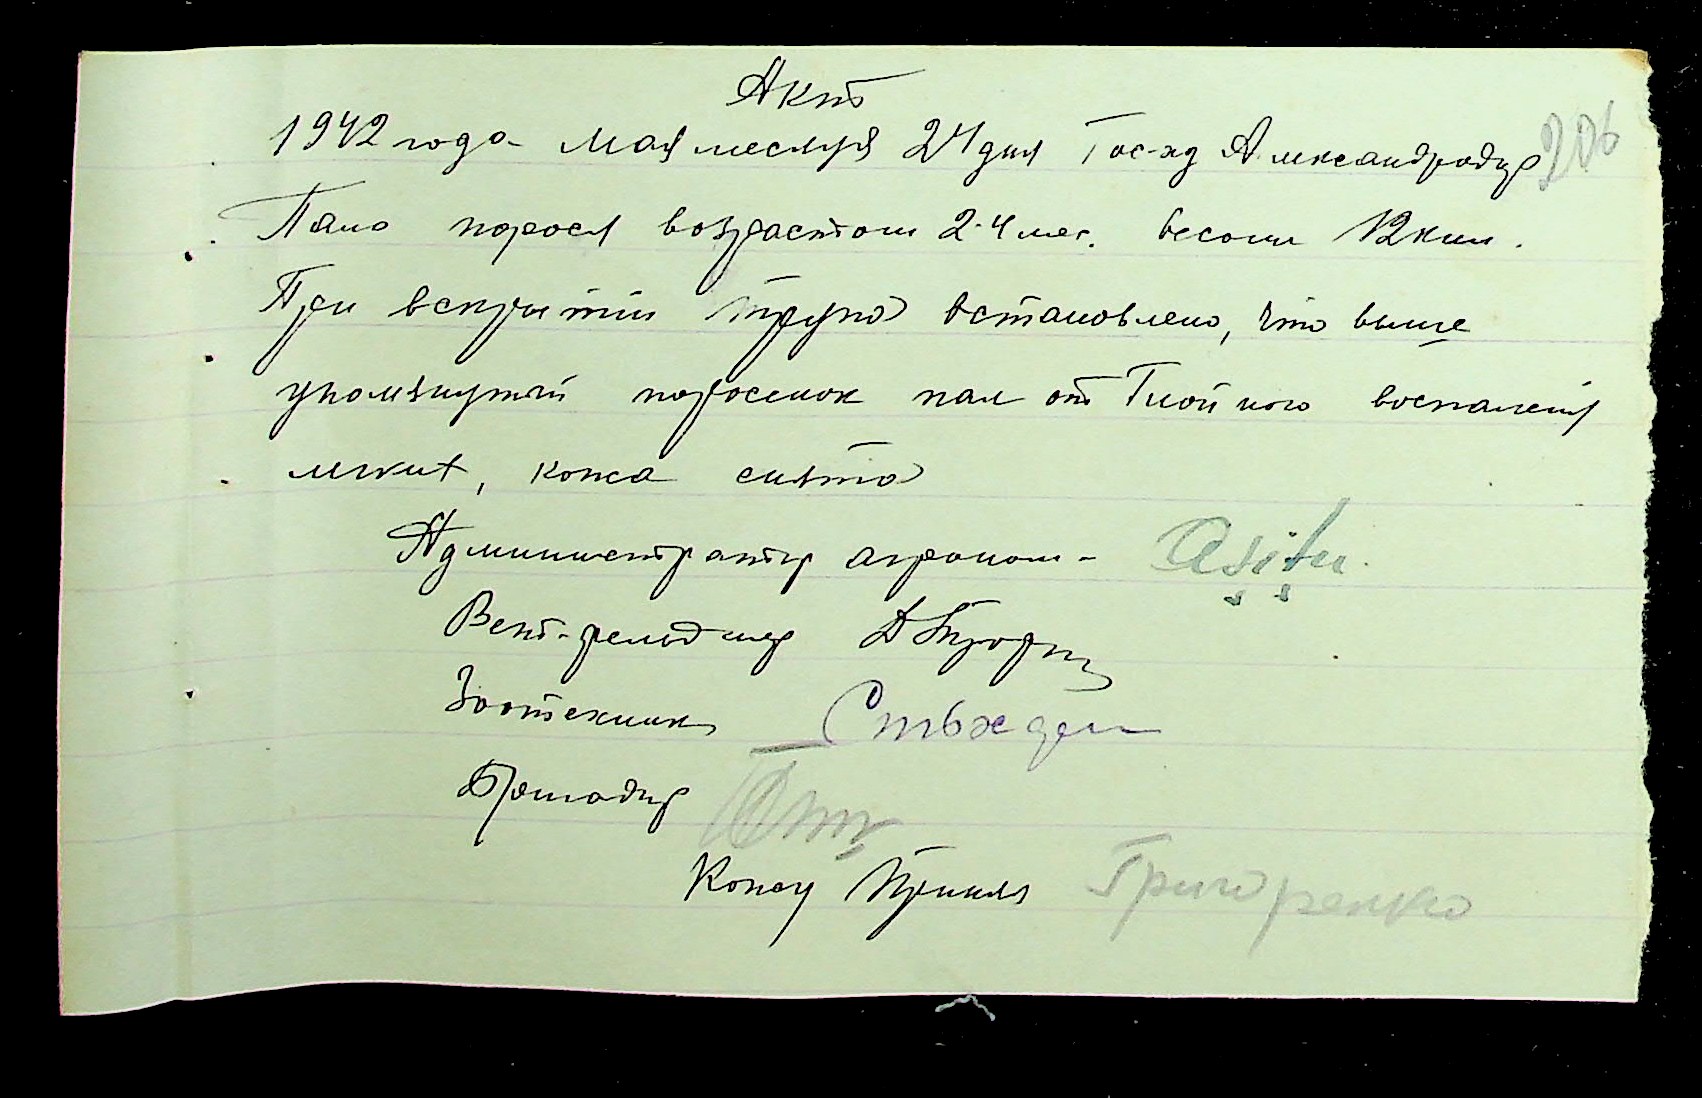 Акт
206
1942 года мая месяця 24 дня Гос-хд Александродар
Пало порося возрастом 2-4 мес. весом 12 кил.
При вскритіи трупа встановлено, что выше
упомянутый поросенок пал от Гнойного воспаления
мгких, кожа снята
Администратр агроном -
Вет-фельдшер
Зоотехник
Бригадир
Кожу принял Григоренко